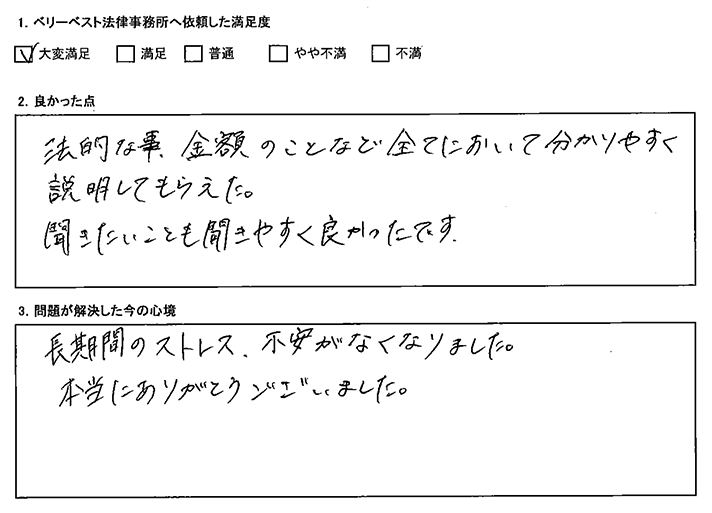 1. ベリーベスト法律事務所へ依頼した満足度
大変満足 満足 普通 やや不満 不満
2. 良かった点
法的な事、金額のことなど全てにおいて分かりやすく
説明してもらえた。
聞きたいことも聞きやすく良かったです.
3. 問題が解決した今の心境
長期間のストレス、不安がなくなりました。
本当にありがとうございました。